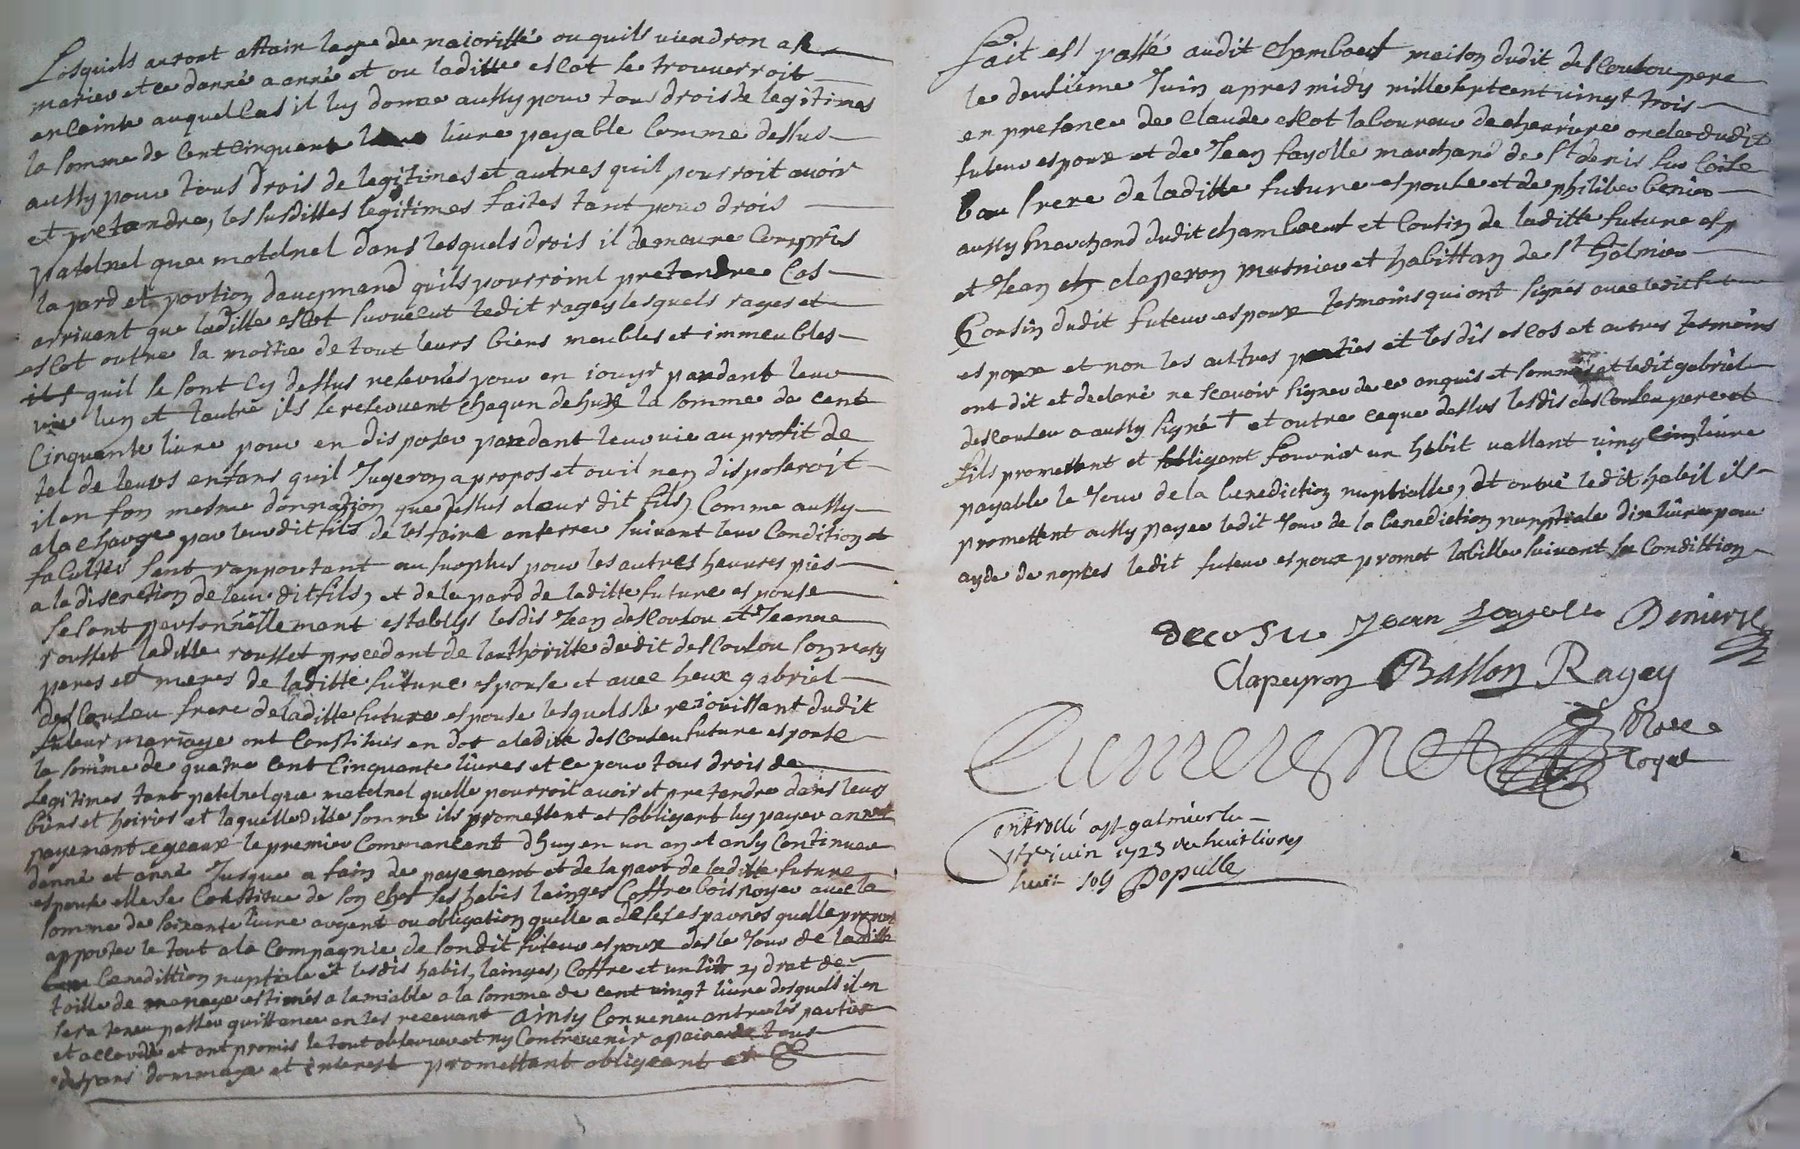 Losquiels auront attain lage de maioritté ou quils viendron a se
marier et ce danné a anné et ou laditte escot se trouverroit
enceinte auquel cas il luy donne aussy pour tous drois de legitimes
la somme de cent cinquante livre payable comme dessus
aussy pour tous drois de legitimes et autres quil pourroit avoir
et pretandre, les susdittes legitimes faites tant pour drois
paternel que maternel dans lesquels drois il demeure compris
la pard et portion daucgmand quils pourroint pretendre Cas
arrivant que laditte escot survecut ledit ragey lesquels rages et
escot outre la moitié de tout leurs biens meubles et immeubles
quil se sont cy dessus reservés pour en iouyr pandant leur
vie lun et lautre ils se reservent chaqun de huxe la somme de cent
Cinquante livre pour en disposer pandant leur vie au profit de
tel de leurs enfans quil Jugeron a propos et ou il nen disposeroit
il en fon mesme donnation que dessus a leur dit fils, Comme aussy
a la charge par leur dit fils de les faire enterrer suivant leur Condition et
facultés sent rapportant au surplus pour les autres heuvres pies
a la discretion de leur dit fils, et de la pard de laditte future espouse
se sont personnellement establys lesdis Jean descoulou et Jeanne
rousset laditte rousset procedant de lauthoritte dudit descoulou son mary
peres et meres de laditte future espouse et avec heux gabriel
descouleu frere de laditte future espouse lesquels se rejouissant dudit
futeur mariage ont Constitués en dot a laditte descouleu future espouse
la somme de quatre cent Cinquante livres et ce pour tous drois de
Legitimes tant paternel que maternel quelle pourroit avoir et pretendre dans leurs
biens et hoiries et laquelle ditte somme ils promettent et sobligent luy payer an
payemant egeaux le premier Commancent dhuy en un an et ansy Continuer
danné et anné Jusque a fain de payement et de la part de laditte future
espouse elle se Constitue de son chef ses habis lainges Coffre bois noyer avec la
somme de soixante livre argent ou obligation quelle a de ses espargnes quelle promet
apporter le tout a la Compagnie de son dit futeur espoux des le Jour de laditte
benedittion nuptiale et lesdis habis, lainges, Coffre et un lit drat de
toille de menage estimés a lamiable a la somme de cent vingt livre desquels il en
sera tenu passer quittance en les recevant Ainsy Convenu entre les parties
et accordé et ont promis le tout observer et ny Contrevenir a paine de tous
despans dommage et interest promettant obligeant et &
Fait est passé audit Chambeuf maison dudit descoulou pere
le deusième Juin apres midy mille sept cent vingt trois
en presance de Claude escot laboureur de chevrière oncle dudit
futeur espoux et de Jean fayolle marchand de St denis sur Coise
beau frere de laditte future espouse et de philiber benier
aussy marchand dudit chambeuf et Cousin de laditte future esp
et Jean claperon musnier et habittan de St Galmier
Cousin dudit futeur espoux tesmoins qui ont signés avec ledit fut
espoux et non les aultres parties et lesdis escos et autres tesmoins
ont dit et declaré ne scavoir signer de ce anquis et sommés et ledit gabriel
descouleu a aussy signé + et outre ce que dessus lesdis descouleu pere et
fils promettent et sobligent fournir un habit vallent vingt cinq livre
payable le Jour de la benediction nuptialle, et outre ledit habit ils
promettent aussy payer ledit Jour de la benediction nuptiale dix livre pour
ayde de nopces ledit futeur espoux promet labiller suivant sa Condittion
decosu Jean fayolle Beniere
Clapeyron Basson Ragey
Nore
royal
Controllé a St galmier le
juin 1723 reçu huit livres
huit sols Populle